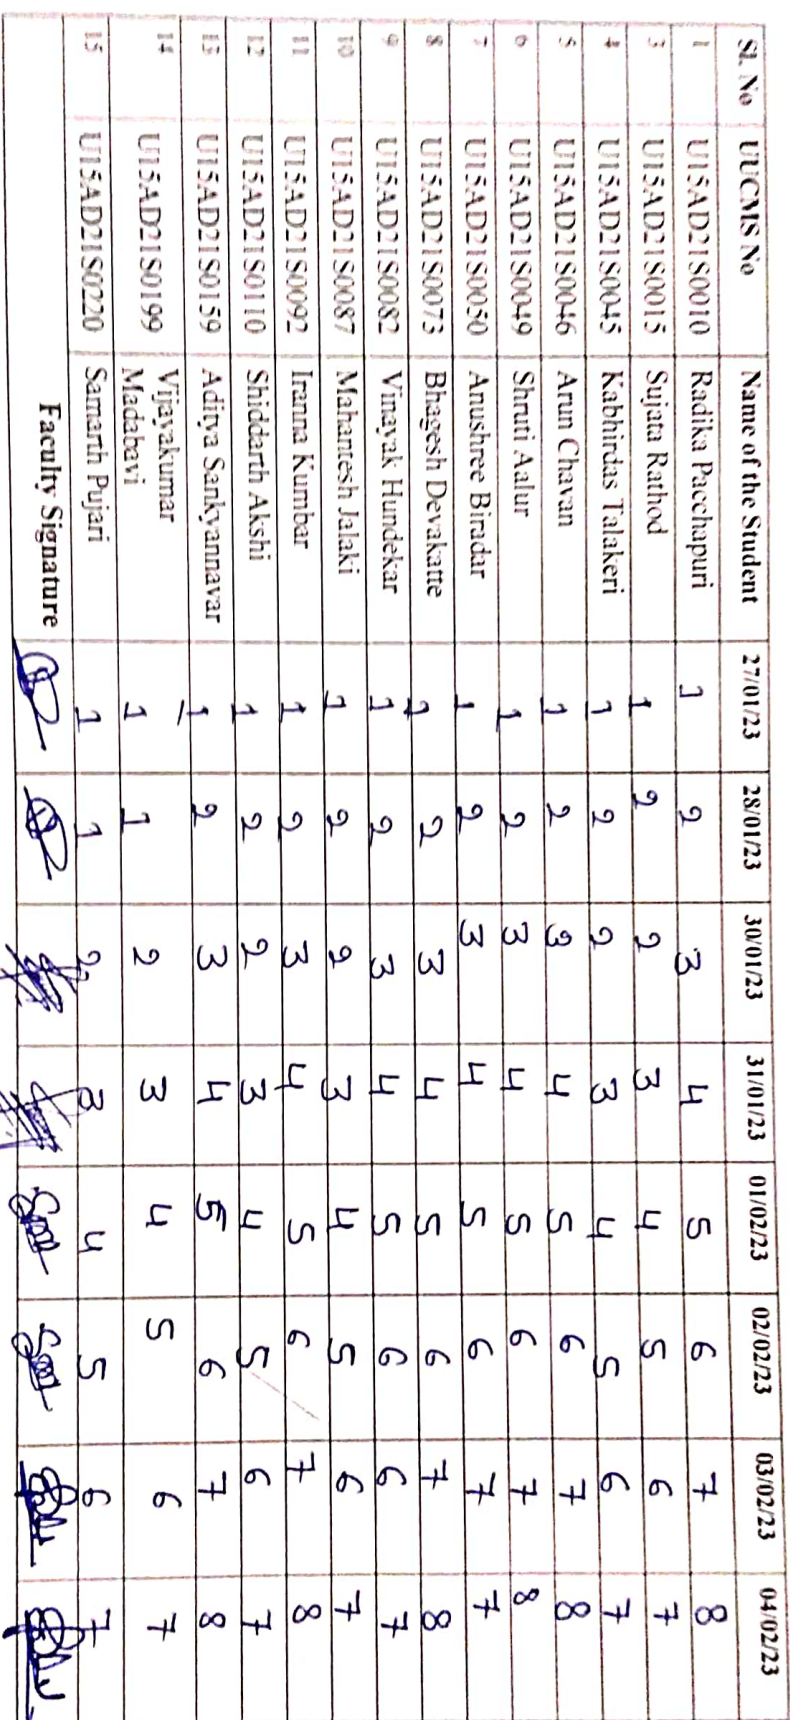 Sl. No UUCMS No Name of the Student 27/01/23 28/01/23 30/01/23 31/01/23 01/02/23 02/02/23 03/02/23 04/02/23
1 U15AD21S0010 Radika Pacchapuri 1 2 3 4 5 6 7 8
3 U15AD21S0015 Sujata Rathod 1 2 2 3 4 5 6 7
4 U15AD21S0045 Kabhirdas Talakeri 1 2 2 3 4 5 6 7
5 U15AD21S0046 Arun Chavan 1 2 3 4 5 6 7 8
6 U15AD21S0049 Shruti Aalur 1 2 3 4 5 6 7 8
7 U15AD21S0050 Anushree Biradar 1 2 3 4 5 6 7 7
8 U15AD21S0073 Bhagesh Devakatte 1 2 3 4 5 6 7 8
9 U15AD21S0082 Vinayak Hundekar 1 2 3 4 5 6 6 7
10 U15AD21S0087 Mahantesh Jalaki 1 2 2 3 4 5 6 7
11 U15AD21S0092 Iranna Kumbar 1 2 3 4 5 6 7 8
12 U15AD21S0110 Shiddarth Akshi 1 2 2 3 4 5 6 7
13 U15AD21S0159 Aditya Sankyannavar 1 2 3 4 5 6 7 8
14 U15AD21S0199 Vijayakumar
Madabavi 1 1 2 3 4 5 6 7
15 U15AD21S0220 Samarth Pujari 1 1 2 3 4 5 6 7
Faculty Signature